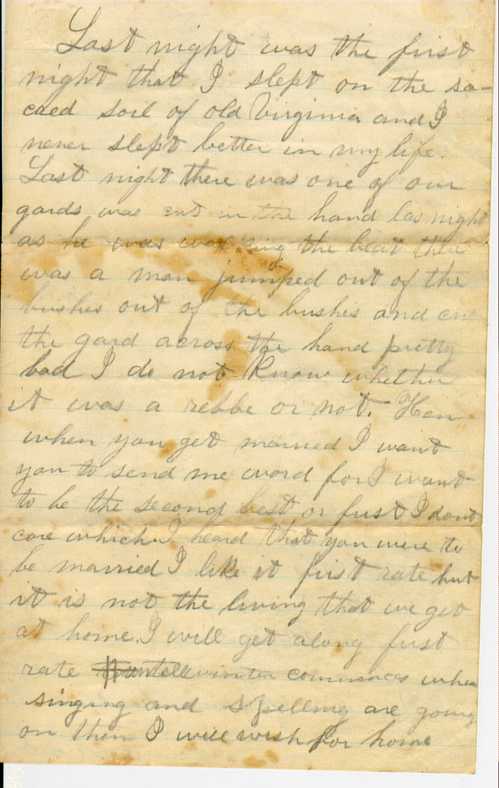 Last night was the first
night that I slept on the sa-
cred soil of old Virginia and I
never slept better in my life.
Last night there was one of our
gards was cut in the hand las night
as he was walking the beat there
was a man jumped out of the
bushes out of the bushes and cut
the gard across the hand pretty
bad I do not know whether
it was a rebbe or not. Hen
when you get married I want
you to send me word for I want
to be the second best or first I dont
care which. I heard that you were to
be married I like it first rate but
it is not the living that we get
at home. I will get along first
rate untell winter commences when
singing and spelling are going
on then I will wish for home